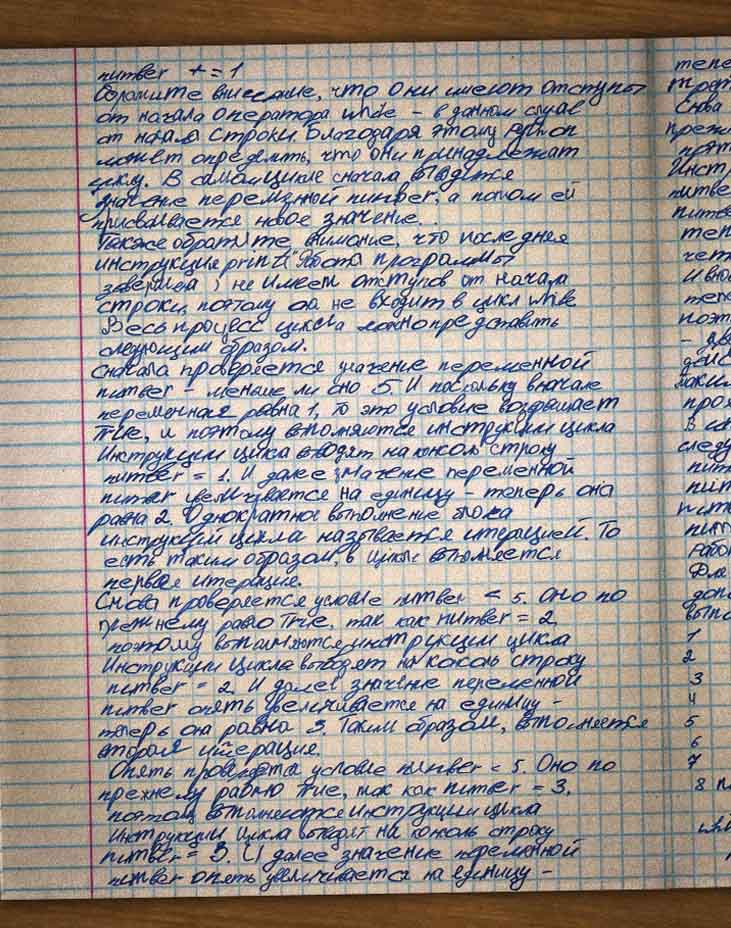 number += 1
Обратите внимание, что они имеют отступы
от начала оператора while - в данном случае
от начала строки. Благодаря этому Python
может определить, что они принадлежат
циклу. В самом цикле сначала выводится
значение переменной number, а потом ей
присваивается новое значение.
Также обратите внимание, что последняя
инструкция print("Работа программы
завершена") не имеет отступов от начала
строки, поэтому она не входит в цикл while
Весь процесс цикла можно представить
следующим образом.
Сначала проверяется значение переменной
number - меньше ли оно 5. И поскольку вначале
переменная равна 1, то это условие возвращает
True, и поэтому выполняются инструкции цикла
Инструкции цикла выводят на консоль строку
number = 1. И далее значение переменной
number увеличивается на единицу - теперь она
равна 2. Однократное выполнение блока
инструкций цикла называется итерацией. То
есть таким образом, в цикле выполняется
первая итерация.
Снова проверяется условие number < 5. Оно по
прежнему равно True, так как number = 2,
поэтому выполняются инструкции цикла
Инструкции цикла выводят на консоль строку
number = 2. И далее значение переменной
number опять увеличивается на единицу -
теперь она равна 3. Таким образом, выполняется
вторая итерация.
Опять проверяется условие number < 5. Оно по
прежнему равно True, так как number = 3,
поэтому выполняются инструкции цикла
Инструкции цикла выводят на консоль строку
number = 3. И далее значение переменной
number опять увеличивается на единицу -
1
2
3
4
5
6
7
8